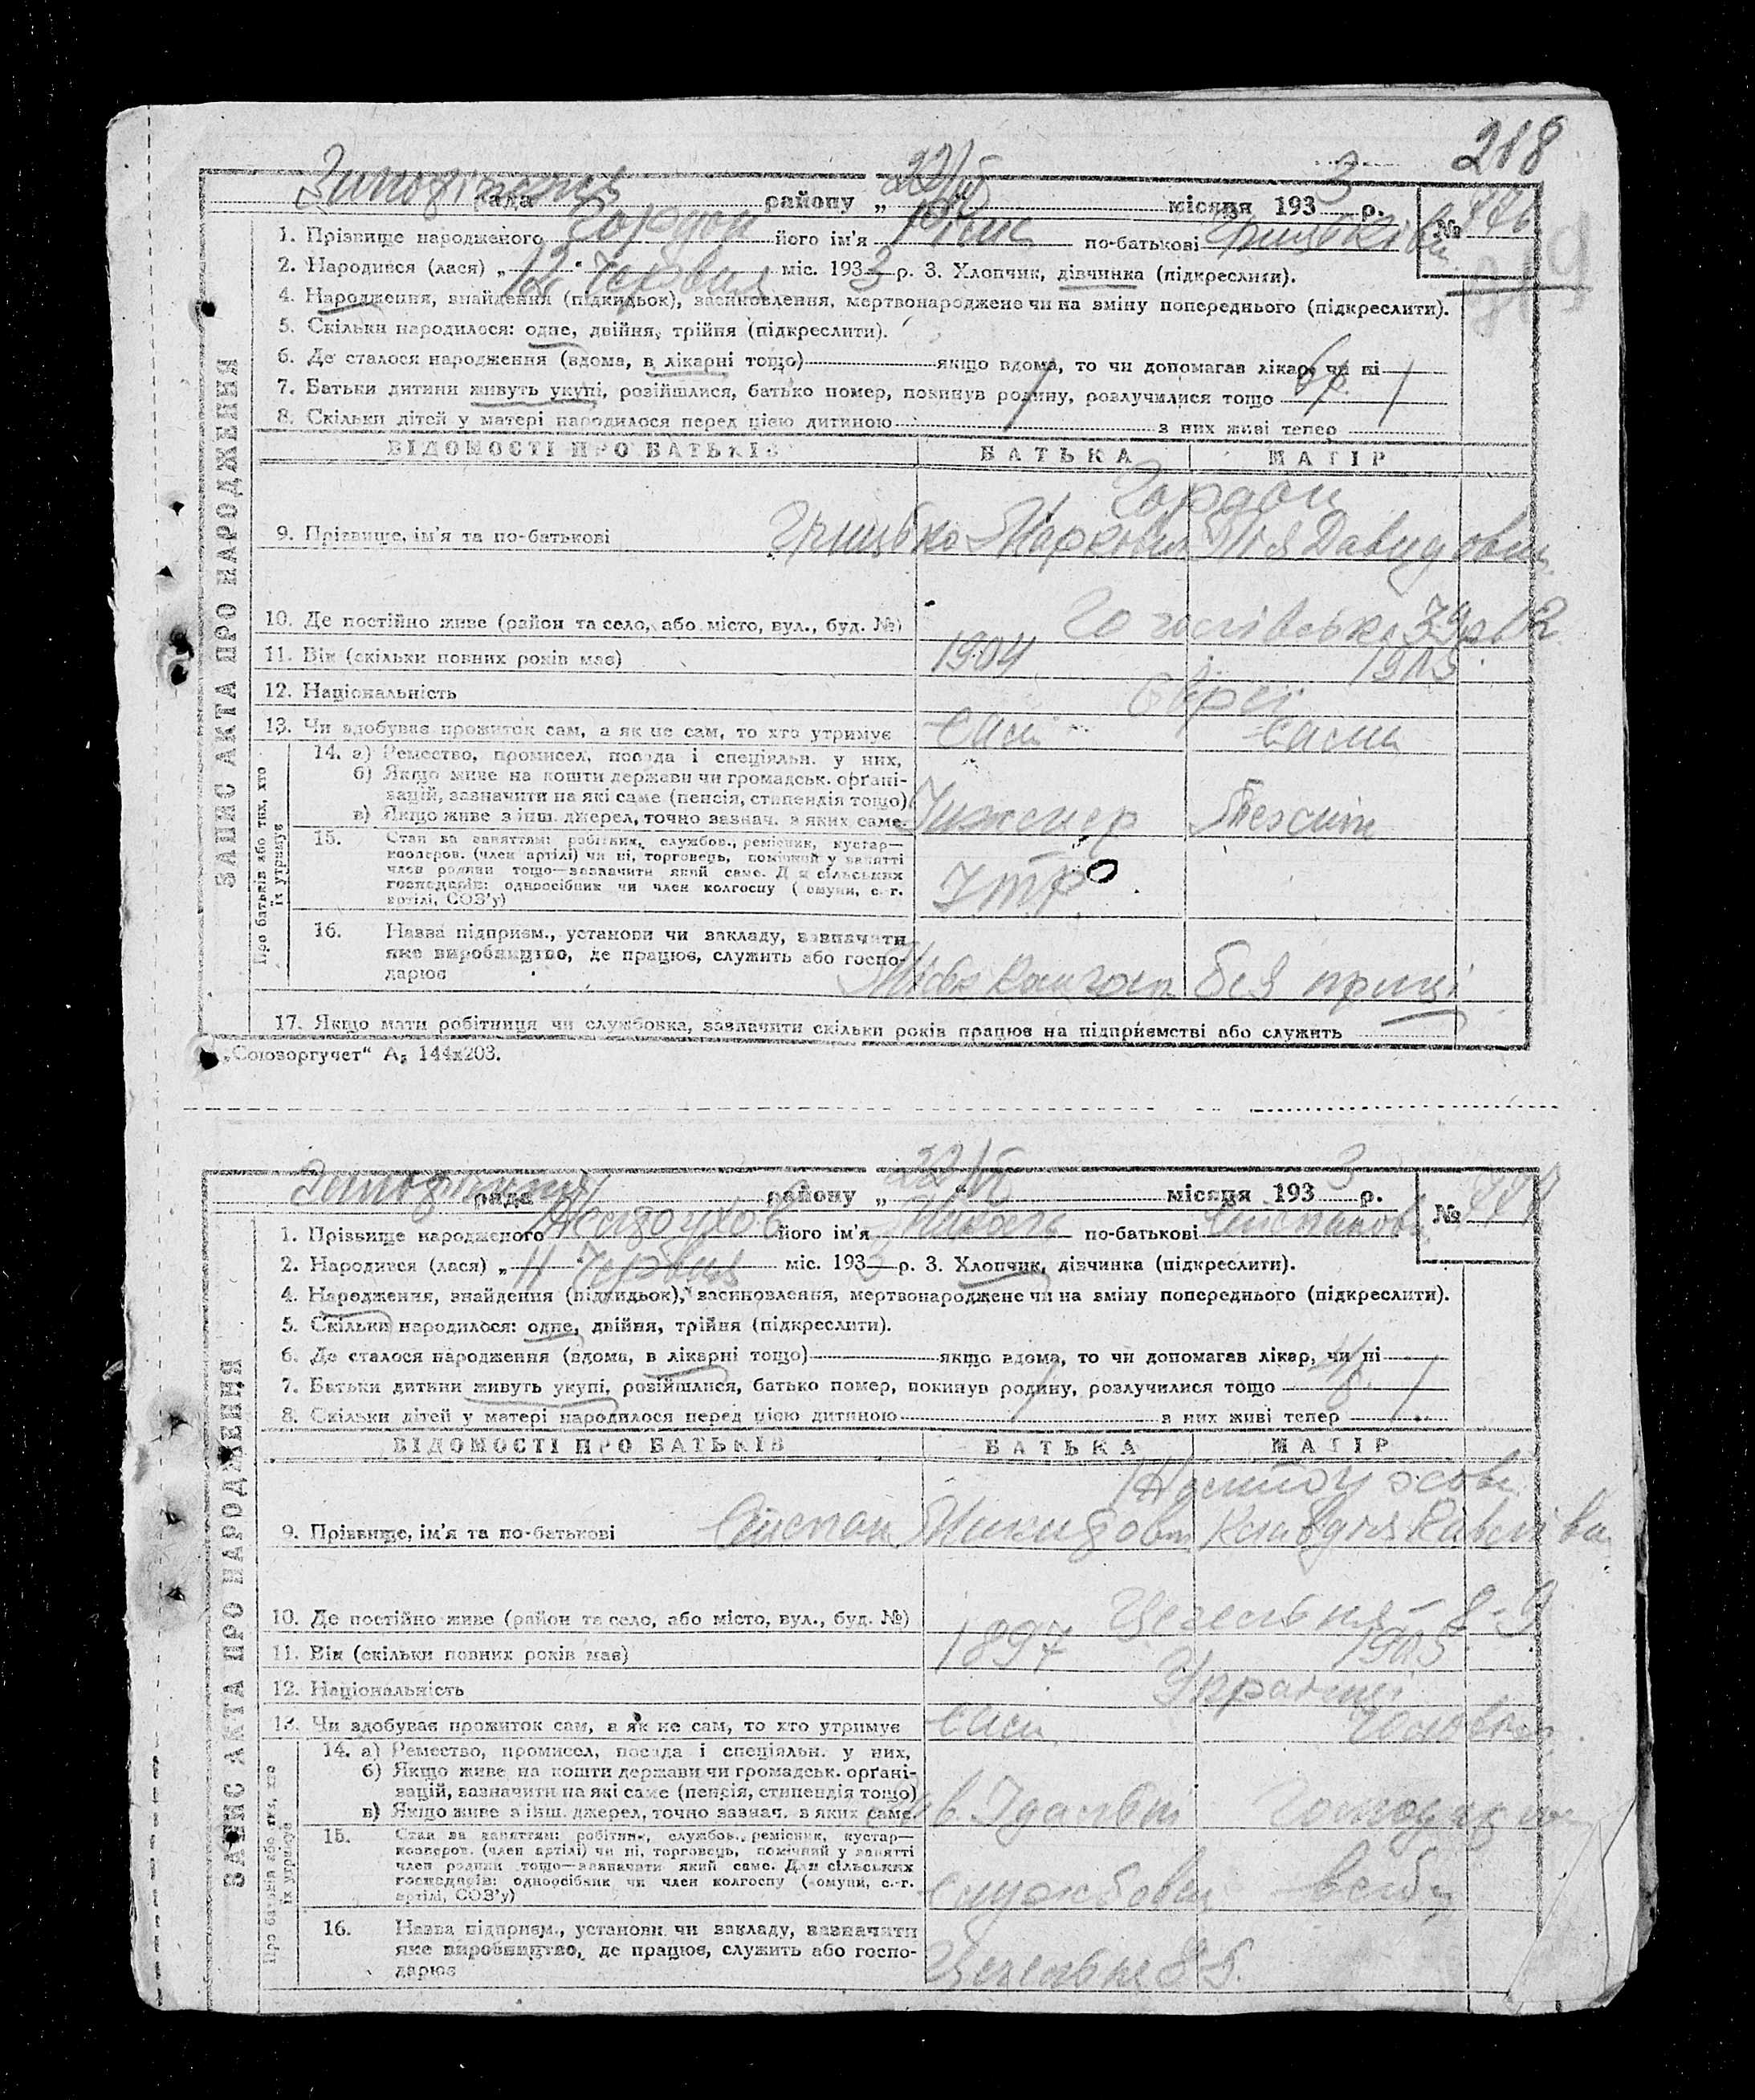 218
22/VI 3
рада району „ “ місяця 193 р. № 776
1. Прізвище народженого Гордон його ім'я по-батькові
2. Народився (лася) „12“ Червня міс. 1933 р. 3. Хлопчик, дівчинка (підкреслити).
4. Народження, знайдення (підкидьок), засиновлення, мертвонароджене чи на зміну попереднього (підкреслити).
5. Скільки народилося: одне, двійня, трійня (підкреслити).
6. Де сталося народження (вдома, в лікарні тощо) якщо вдома, то чи допомагав лікар, чи ні
7. Батьки дитини живуть укупі, розійшлися, батько помер, покинув родину, розлучилися тощо
8. Скільки дітей у матері народилося перед цією дитиною з них живі тепер
ЗАПИС АКТА ПРО НАРОДЖЕННЯ
ВІДОМОСТІ ПРО БАТЬКІВ БАТЬКА МАТІР
Гордон
9. Прізвище, ім'я та по-батькові Грицько Маркович Давидовна
10. Де постійно живе (район та село, або місто, вул., буд. №)
11. Вік (скільки повних років має) 1904 1905
12. Національність Євреї
13. Чи здобуває прожиток сам, а як не сам, то хто утримує Сам Сама
Про батьків або тих, хто їх утримує
14. а) Ремество, промисел, посада і спеціяльн. у них,
б) Якщо живе на кошти держави чи громадськ. орґані-
зацій, зазначити на які саме (пенсія, стипендія тощо)
в) Якщо живе з інш. джерел, точно зазнач. з яких саме. Инженер
15. Стан за заняттям: робітник, службов., ремісник, кустар—
кооперов. (член артілі) чи ні, торговець, помічний у занятті
член родини тощо—зазначити який саме. Для сільських
господарів: одноосібник чи член колгоспу (комуни, с.-г.
артілі, СОЗ'у) ІТР
16. Назва підприєм., установи чи закладу, зазначити
яке виробництво, де працює, служить або госпо-
дарює без праці
17. Якщо мати робітниця чи службовка, зазначити скільки років працює на підприємстві або служить
„Союзоргучет“ А; 144х203.
22/VI 3
рада району „ “ місяця 193 р. № 777
1. Прізвище народженого його ім'я по-батькові
2. Народився (лася) „11“ Червня міс. 1933 р. 3. Хлопчик, дівчинка (підкреслити).
4. Народження, знайдення (підкидьок), засиновлення, мертвонароджене чи на зміну попереднього (підкреслити).
5. Скільки народилося: одне, двійня, трійня (підкреслити).
6. Де сталося народження (вдома, в лікарні тощо) якщо вдома, то чи допомагав лікар, чи ні
7. Батьки дитини живуть укупі, розійшлися, батько помер, покинув родину, розлучилися тощо
8. Скільки дітей у матері народилося перед цією дитиною з них живі тепер
ЗАПИС АКТА ПРО НАРОДЖЕННЯ
ВІДОМОСТІ ПРО БАТЬКІВ БАТЬКА МАТІР
9. Прізвище, ім'я та по-батькові Степан Клавдия
10. Де постійно живе (район та село, або місто, вул., буд. №) 8-9
11. Вік (скільки повних років має) 1897 1905
12. Національність Українці
13. Чи здобуває прожиток сам, а як не сам, то хто утримує Сам Чоловік
Про батьків або тих, хто їх утримує
14. а) Ремество, промисел, посада і спеціяльн. у них,
б) Якщо живе на кошти держави чи громадськ. орґані-
зацій, зазначити на які саме (пенсія, стипендія тощо)
в) Якщо живе з інш. джерел, точно зазнач. з яких саме.
15. Стан за заняттям: робітник, службов., ремісник, кустар—
кооперов. (член артілі) чи ні, торговець, помічний у занятті
член родини тощо—зазначити який саме. Для сільських
господарів: одноосібник чи член колгоспу (комуни, с.-г.
артілі, СОЗ'у) службовец
16. Назва підприєм., установи чи закладу, зазначити
яке виробництво, де працює, служить або госпо-
дарює